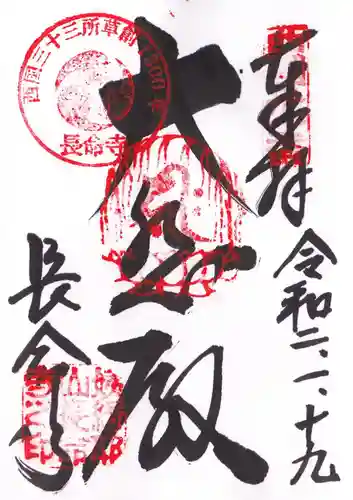 奉拝
令和二、一、十九
西国三十三所草創1300年
長命寺
大悲殿
長命寺